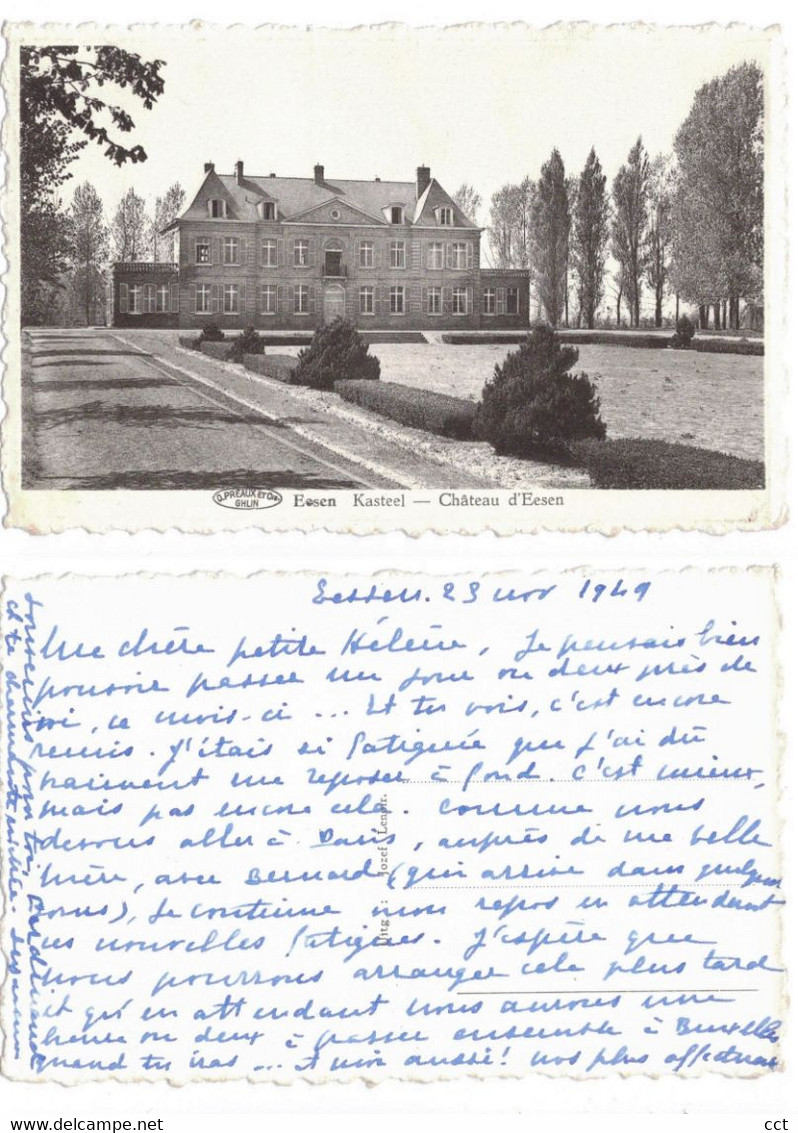 O. PRÉAUX ET Cie
GHLIN
Eesen Kasteel — Château d'Eesen
Eessen. 23 nov 1949
Ma chère petite Hélène, Je pensais bien
pouvoir passer un jour ou deux près de
toi, ce mois-ci ... Et tu vois, c'est encore
remis. J'étais si fatiguée que j'ai dû
vraiment me reposer à fond. C'est mieux,
mais pas encore cela. Comme nous
devons aller à Paris, auprès de ma belle
Mère, avec Bernard (qui arrive dans quelques
jours), Je continue mon repos en attendant
les nouvelles fatigues. J'espère que
nous pourrons arranger cela plus tard
et qu'en attendant nous aurons une
heure ou deux à passer ensemble à Bruxelles
quand tu iras ... et moi aussi! Nos plus affectueux
souvenirs pour toi, Ferdinand
et ta charmante famille.
Uitg. : Jozef Lenoir.
cct